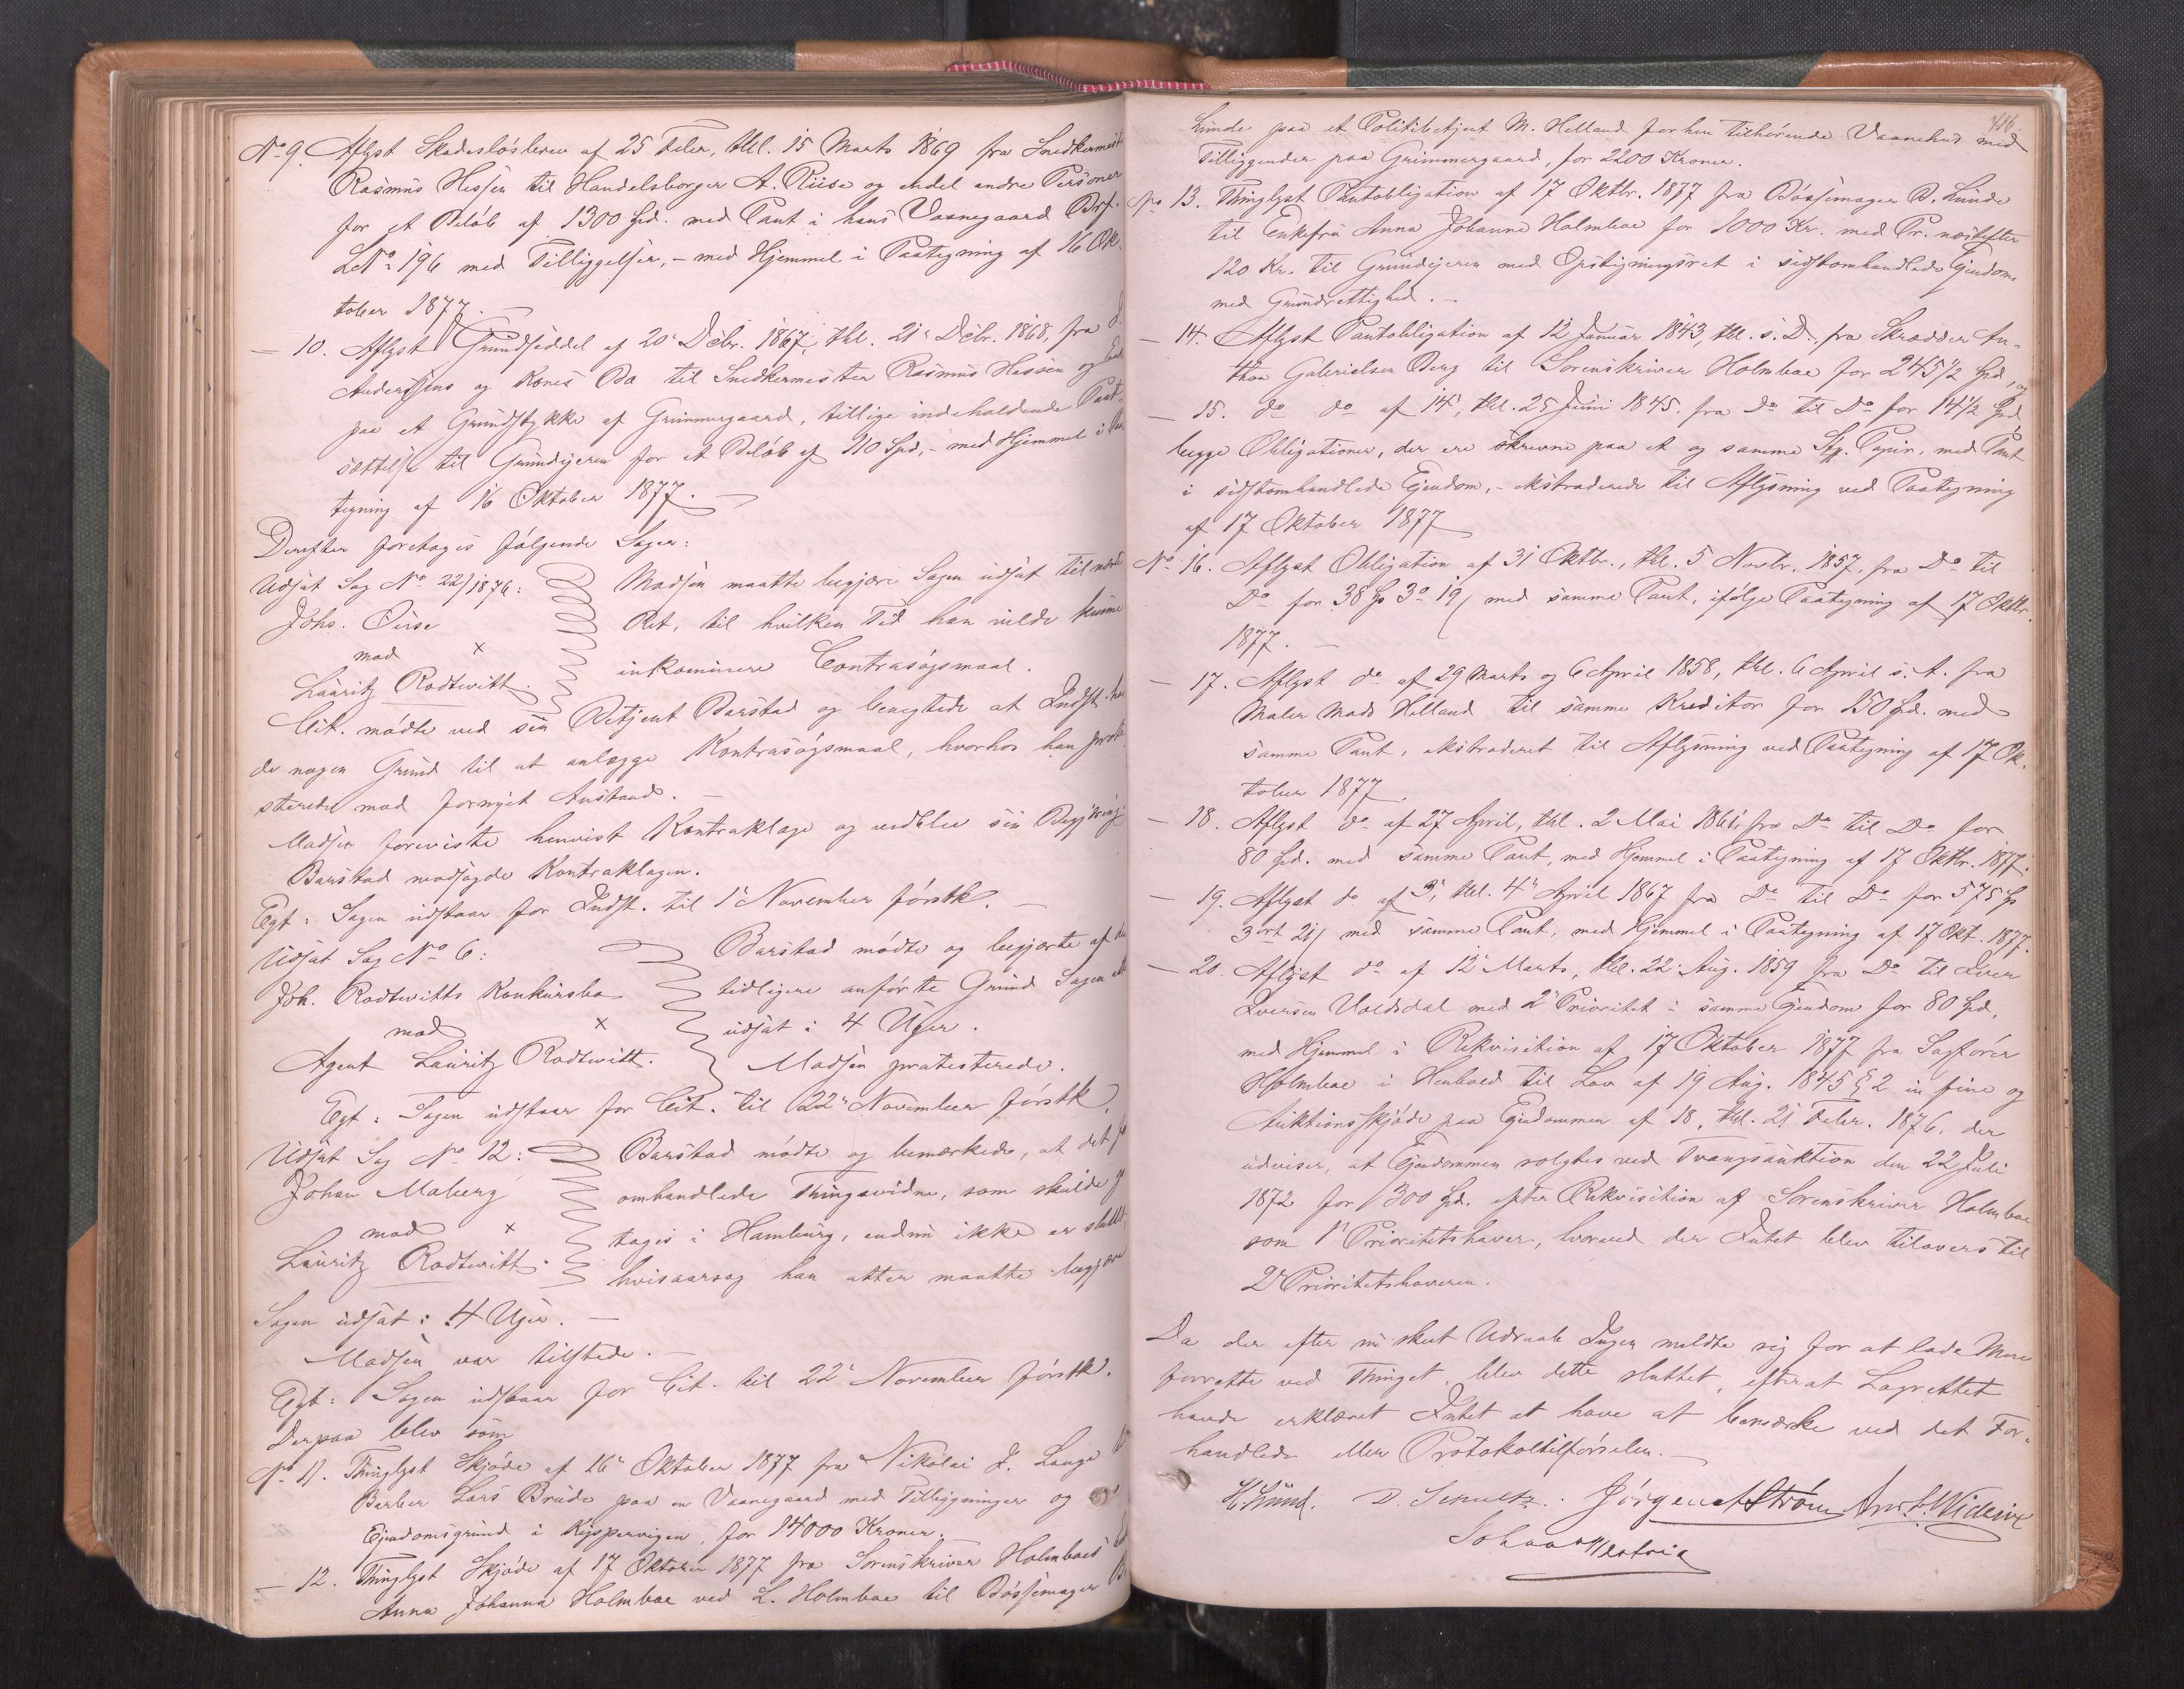 No 9. Aflyst Skadesløsbrev af 25 Febr., thl. 15 Marts 1869 fra Snedkermest
Rasmus Hessen til Handelsborger A. Riise og endel andre Personer
for et Beløb af 1300 Spd. med Pant i hans Vaanegaard Brf.
L No 196 med Tilliggelser, - med Hjemmel i Paategning af 16 Ok-
tober 1877. -
- 10. Aflyst Grundseddel af 20 Debr. 1867, thl. 21 Debr. 1868, fra
Anders og Kones Bo til Snedkermester Rasmus Hessen
paa et Grundstykke af Grimmergaard, tillige indeholdende Pant-
sættelse til Grundeieren for et Beløb af 110 Spd, - med Hjemmel i Paa
tegning af 16 Oktober 1877. -
Derefter foretoges følgende Sager:
Udsat Sag No 22/1876: Madsen maatte begjære Sagen udsat til næste
Johs. Ret, til hvilken Tid han vilde kunne
mod x
Lauritz Rodtwitt. inkaminere Contrasøgsmaal.
Cit. mødte ved sin Betjent Barstad og benegtede at Indst.
de nogen Grund til at anlægge Kontrasøgsmaal, hvorhos han prote
sterede mod fornyet Anstand. -
Madsen foreviste henvist Kontraklage og vedblev sin Begjæring
Barstad modsagde Kontraklagen.
Egt: Sagen udstaar for Indst. til 1 November førstk. -
Udsat Sag No 6: Barstad mødte og begjærte af
Joh. Rodtwitts Konkursbo tidligere anførte Grund Sagen
mod x udsat i 4 Uger.
Agent Lauritz Rodtwitt. Madsen protesterede.
Egt: Sagen udstaar for Cit. til 22 November førstk.
Udsat Sag No 12: Barstad mødte og bemærkede, at det
Johan Maberg omhandlede Thingsvidne, som skulde
mod x tages i Hamburg, endnu ikke er sluttet,
Lauritz Rodtwitt. hvisaarsag han atter maatte begjære
Sagen udsat i 4 Uger. -
Madsen var tilstede. -
Egt: Sagen udstaar for Cit. til 22 November førstk.
Derpaa blev som
No 11. Thinglyst Skjøde af 16 Oktober 1877 fra Nikolai J. Lange
Barber Lars Brude paa en Vaanegaard med Tilbygninger og
Eiendomsgrund i Kipervigen, for 14000 Kroner.
- 12. Thinglyst Skjøde af 17 Oktober 1877 fra Sorenskriver Holmboes
Anna Johanna Holmboe ved L. Holmboe til Bøssemager
414
Lunde paa et Politibetjent M. Helland forhen tilhørende Vaanehus med
Tilliggender paa Grimmergaard, for 2200 Kroner.
No 13. Thinglyst Pantobligation af 17 Oktbr. 1877 fra Bøssemager B. Lunde
til Enkefru Anna Johanne Holmboe for 1000 Kr. med Pr. næstefter
120 Kr. til Grundeieren med Opstigningsret i sidstomhandlede Eiendom
med Grundrettighed. -
- 14. Aflyst Pantobligation af 12 Januar 1843, thl. s. D., fra Skrædder An-
thon Gabrielsen Berg til Sorenskriver Holmboe for 245 1/2 Spd, og
- 15. do do af 14, thl. 25 Juni 1845. fra Do til Do for 141/2 Spd
begge Obligationer, der ere skrevne paa et og samme Stp. Papir, med Pant
i sidstomhandlede Eiendom, - ekstraderede til Aflysning ved Paategning
af 17 Oktober 1877
No 16. Aflyst Obligation af 31 Oktbr., thl. 5 Novbr. 1857. fra Do til
Do for 38 Sp 3o 19 med samme Pant, ifølge Paategning af 17 Oktbr.
1877. -
- 17. Aflyst do af 29 Marts og 6 April 1858, thl. 6 April s. A. fra
Maler Mads Helland til samme Kreditor for 150 Spd. med
samme Pant, ekstraderet til Aflysning ved Paategning af 17 Ok-
tober 1877.
- 18. Aflyst do af 27 April, thl. 2 Mai 1861. fra Do til Do for
80 Spd. med samme Pant, med Hjemmel i Paategning af 17 Oktbr. 1877.
- 19. Aflyst do af 3, thl. 4 April 1867 fra Do til Do for 575 Sp
3 ort 21 med samme Pant, med Hjemmel i Paategning af 17 Okt. 1877.
- 20. Aflyst do af 12 Marts, thl. 22 Aug. 1859 fra Do til Iver
Iversen Valdsdal med 2 Prioritet i samme Eiendom for 80 Spd,
med Hjemmel i Rekvisition af 17 Oktober 1877 fra Sagfører
Holmboe i Henhold til Lov af 19 Aug. 1845 § 2 in fine og
Auktionsskjøde paa Eiendommen af 18, thl. 21 Febr. 1876. der
udviser, at Eiendommen solgtes ved Tvangsauktion den 22 Juli
1872 for 1300 Spd. efter Rekvisition af Sorenskriver Holmboe
som 1 Prioritetshaver, hvorved der Intet blev tilovers til
2 Prioritetshaveren.
Da der efter nu skeet Udraab Ingen meldte sig for at lade Mere
forrette ved Thinget, blev dette sluttet, efterat Lagrettet
havde erklæret Intet at have at bemærke ved det For-
handlede eller Protokoltilførselen. -
D. Schultz. Jørgen Strøm
Johan